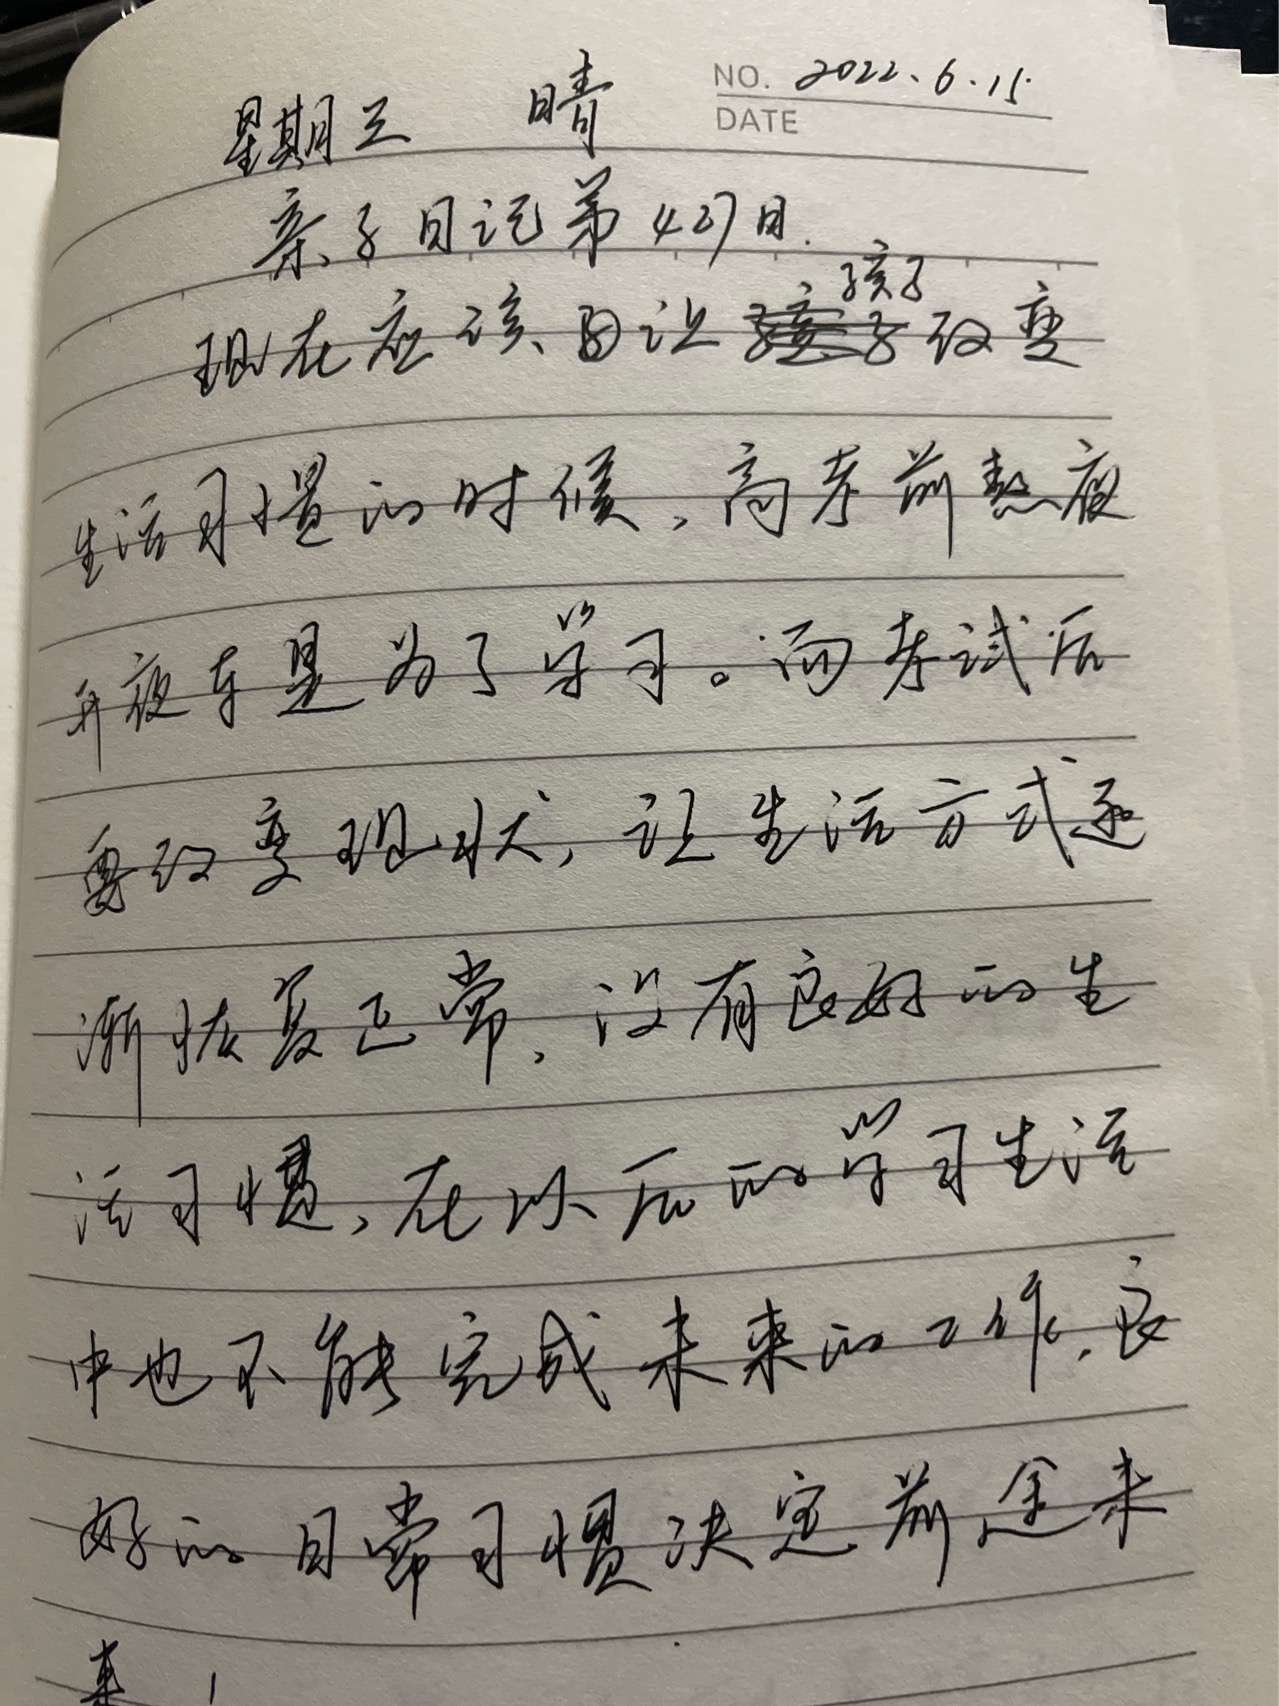 NO. 2022.6.15
DATE
星期三 晴
亲子日记第427日.
现在应该、因让孩子改变
生活习惯的时候,高考前熬夜
开夜车是为了学习。而考试后
要改变现状,让生活方式逐
渐恢复正常,没有良好的生
活习惯,在以后的学习生活
中也不能完成未来的工作,良
好的日常习惯决定前途未
来!